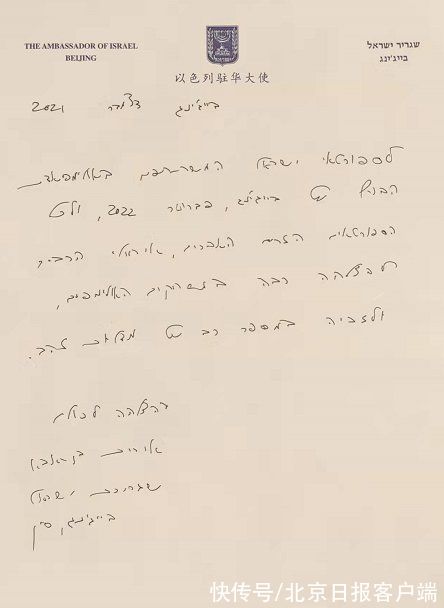 THE AMBASSADOR OF ISRAEL
BEIJING
שגריר ישראל
בייג'ינג
以色列驻华大使
בייג'ינג דצמבר 2021
לספורטאי ישראל המשתתפים באולימפיאדת
החורף של בייג'ינג, פברואר 2022, ולכל
הספורטאים הזרים האחרים, איחולי
להצלחה רבה במשחקים האולימפיים,
ולזכיה במספר רב של מדליות זהב.
בהצלחה לכולם
אירית בן-אבא
שגרירת ישראל
בייג'ינג, סין
快传号/北京日报客户端